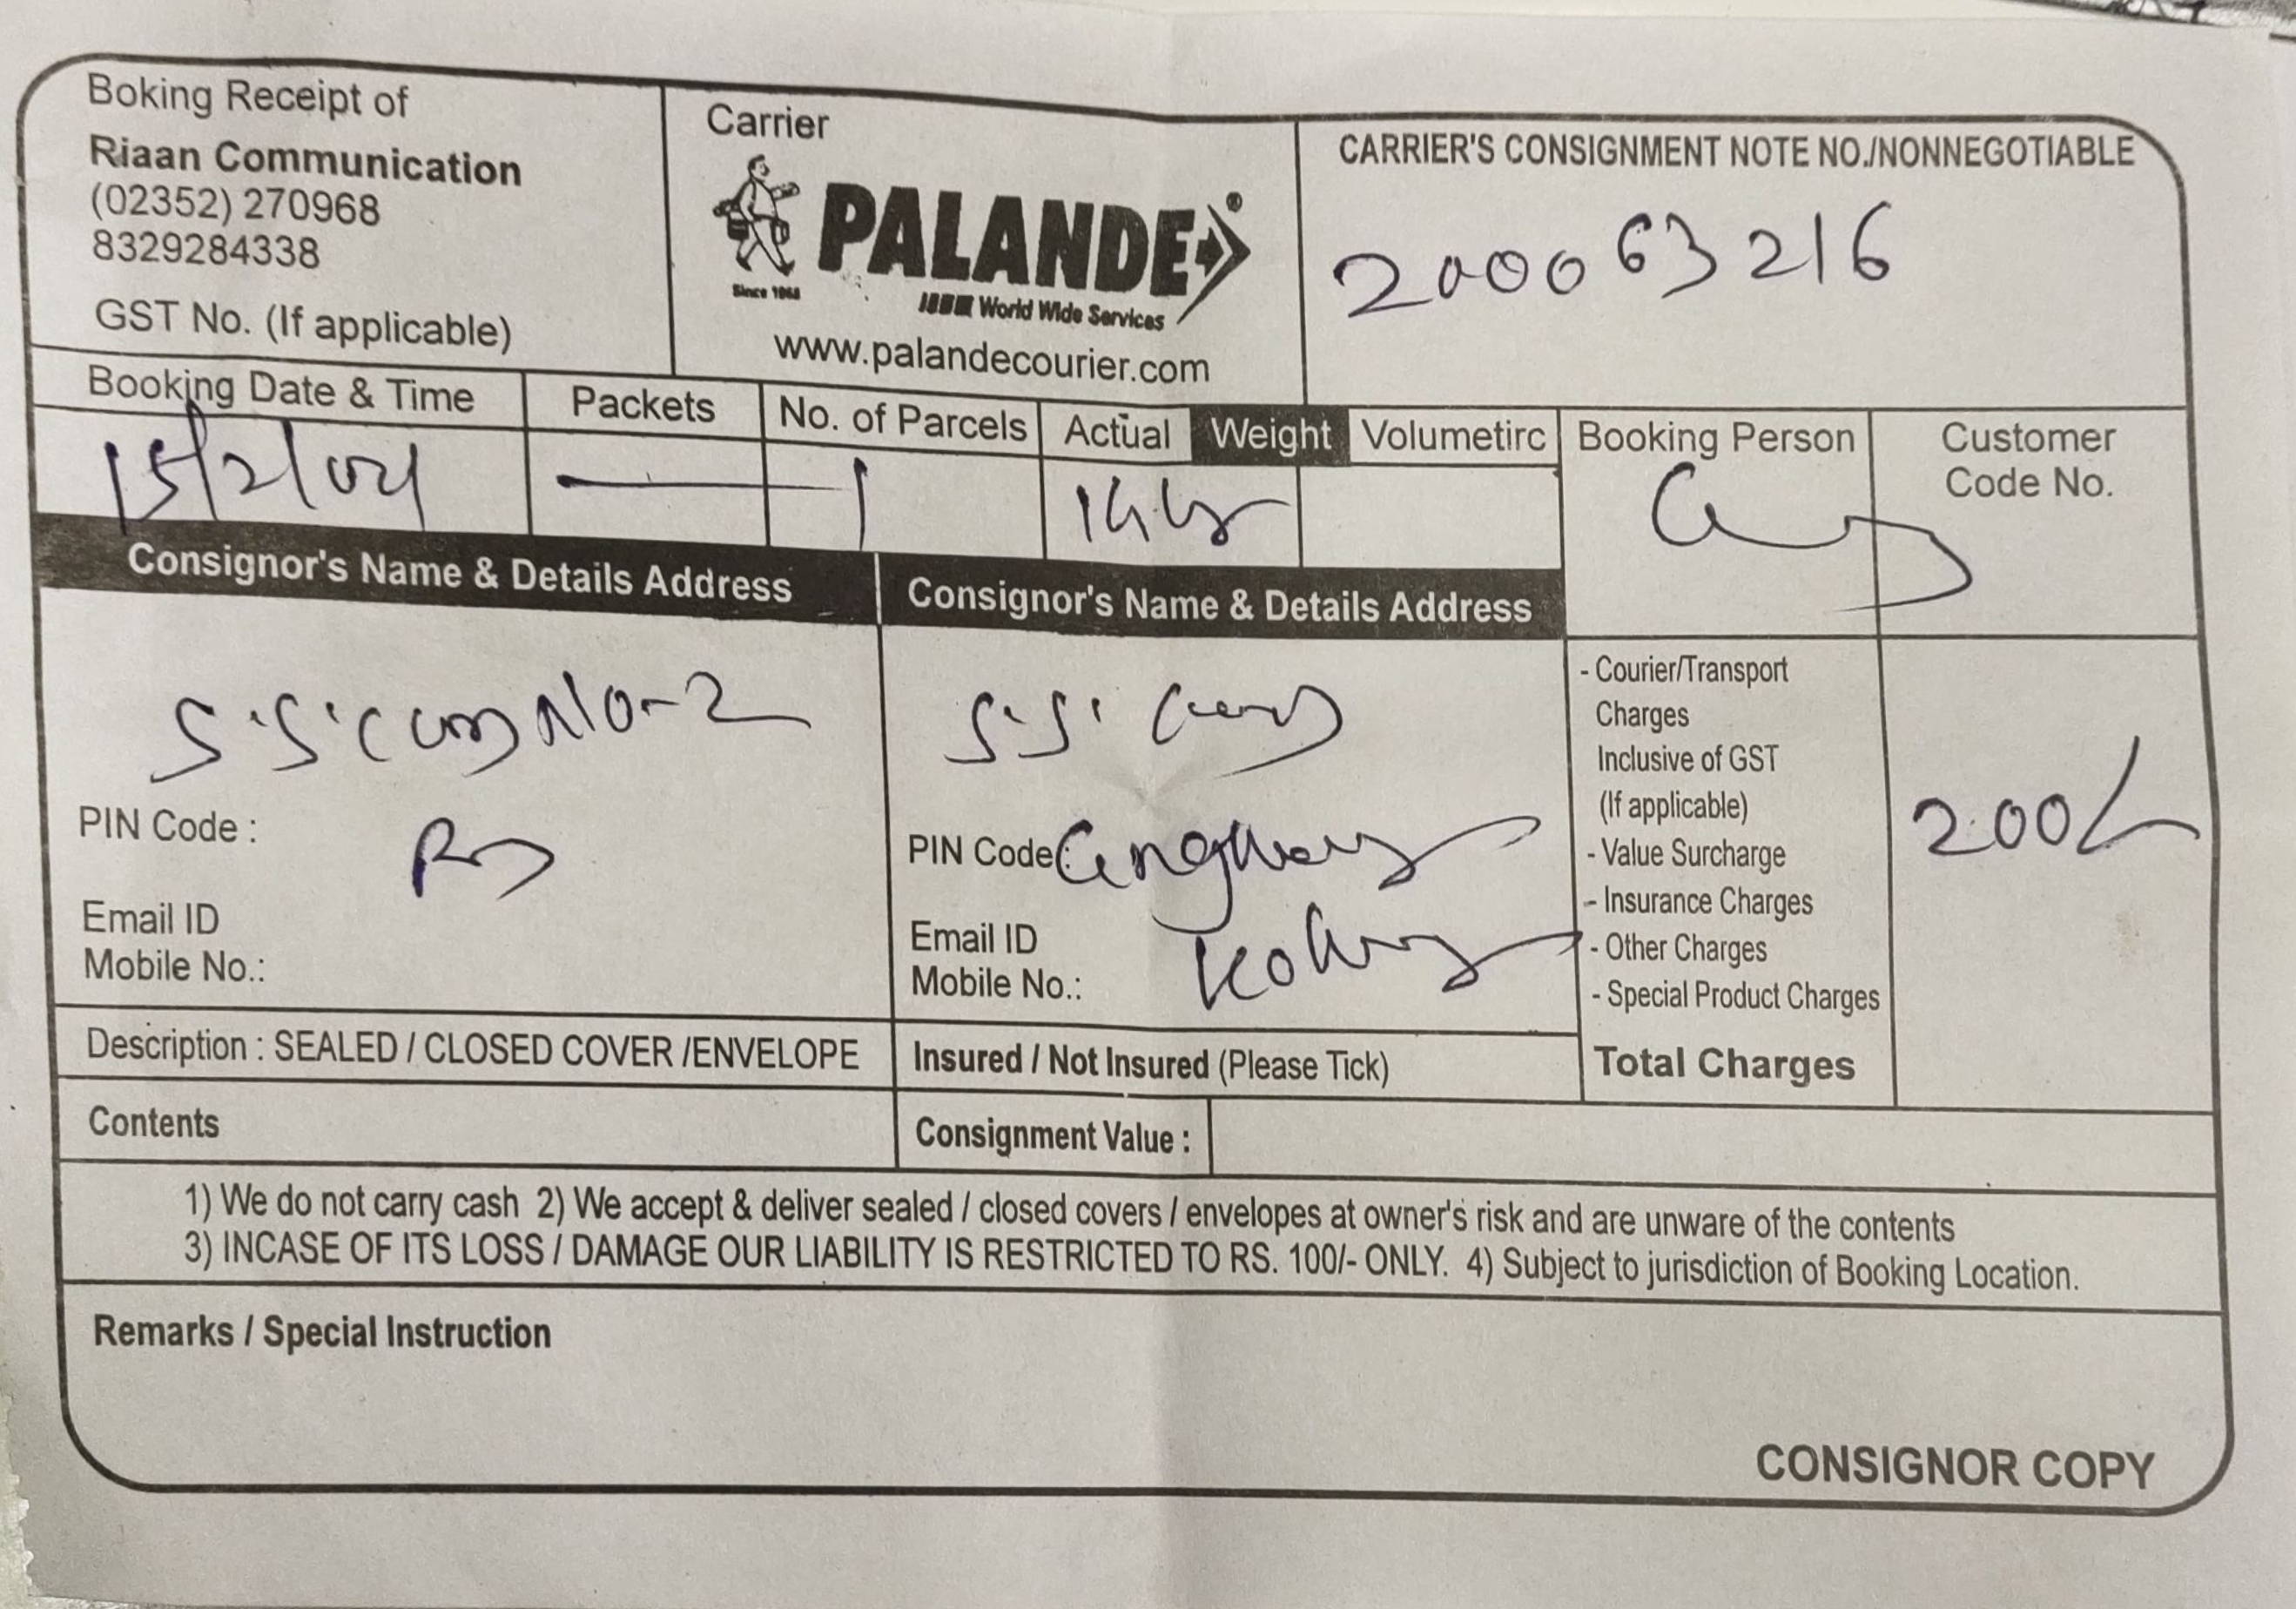 Boking Receipt of
Riaan Communication
(02352) 270968
8329284338
GST No. (If applicable)
Carrier
PALANDE
Since 1968
World Wide Services
www.palandecourier.com
CARRIER'S CONSIGNMENT NOTE NO./NONNEGOTIABLE
200063216
Booking Date & Time
15/2/24
Packets
—
No. of Parcels
1
Actual Weight Volumetirc
Booking Person
Customer
Code No.
Consignor's Name & Details Address
No-2
PIN Code :
Email ID
Mobile No.:
Consignor's Name & Details Address
PIN Code :
Email ID
Mobile No.:
- Courier/Transport
Charges
Inclusive of GST
(If applicable)
- Value Surcharge
- Insurance Charges
- Other Charges
- Special Product Charges
Total Charges
200/-
Description : SEALED / CLOSED COVER /ENVELOPE
Insured / Not Insured (Please Tick)
Contents
Consignment Value :
1) We do not carry cash 2) We accept & deliver sealed / closed covers / envelopes at owner's risk and are unware of the contents
3) INCASE OF ITS LOSS / DAMAGE OUR LIABILITY IS RESTRICTED TO RS. 100/- ONLY. 4) Subject to jurisdiction of Booking Location.
Remarks / Special Instruction
CONSIGNOR COPY